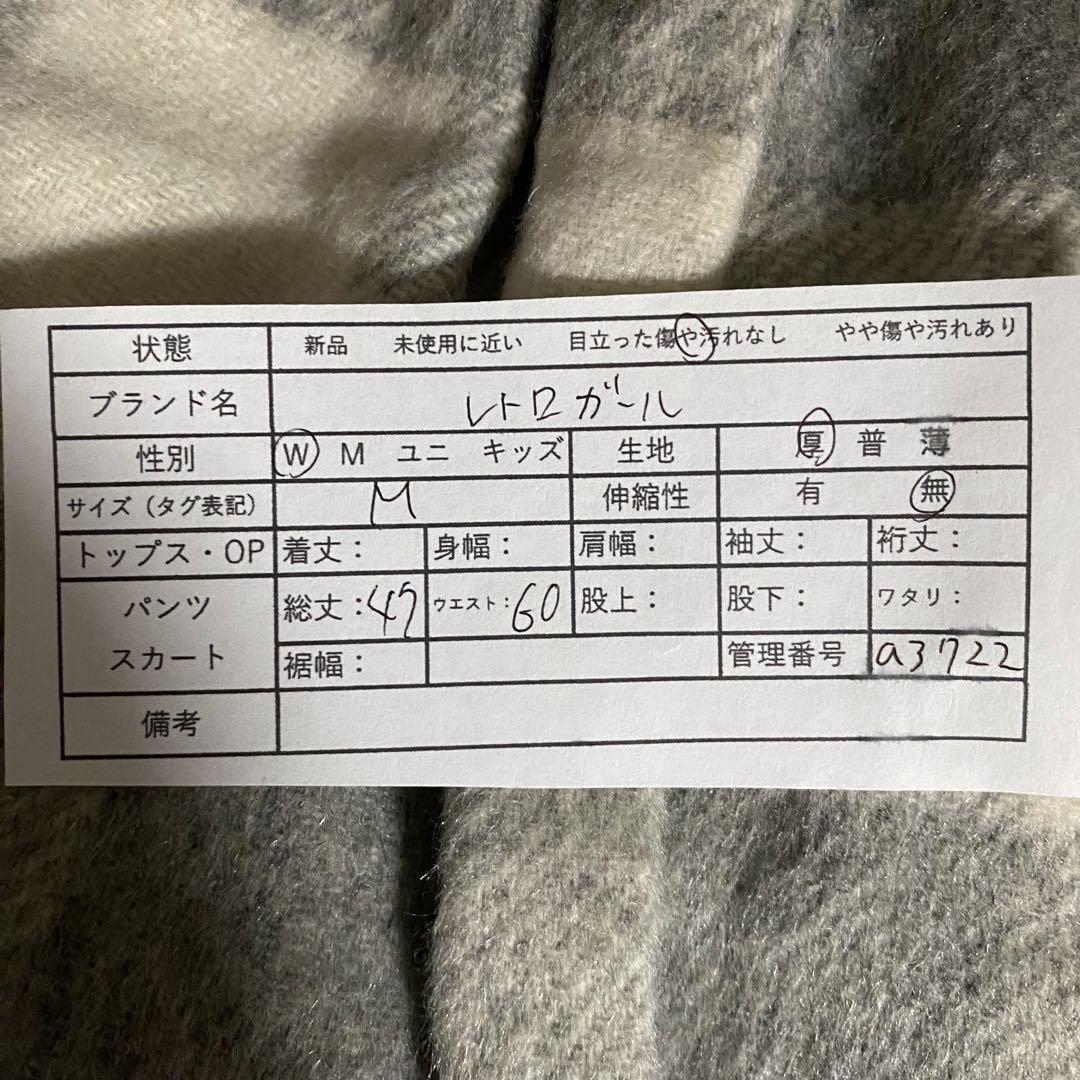 状態 新品 未使用に近い 目立った傷や汚れなし やや傷や汚れあり
ブランド名 レトロガール
性別 W M ユニ キッズ 生地 厚 普 薄
サイズ（タグ表記） M 伸縮性 有 無
トップス・OP 着丈： 身幅： 肩幅： 袖丈： 裄丈：
パンツ 総丈：47 ウエスト：60 股上： 股下： ワタリ：
スカート 裾幅： 管理番号 a3722
備考